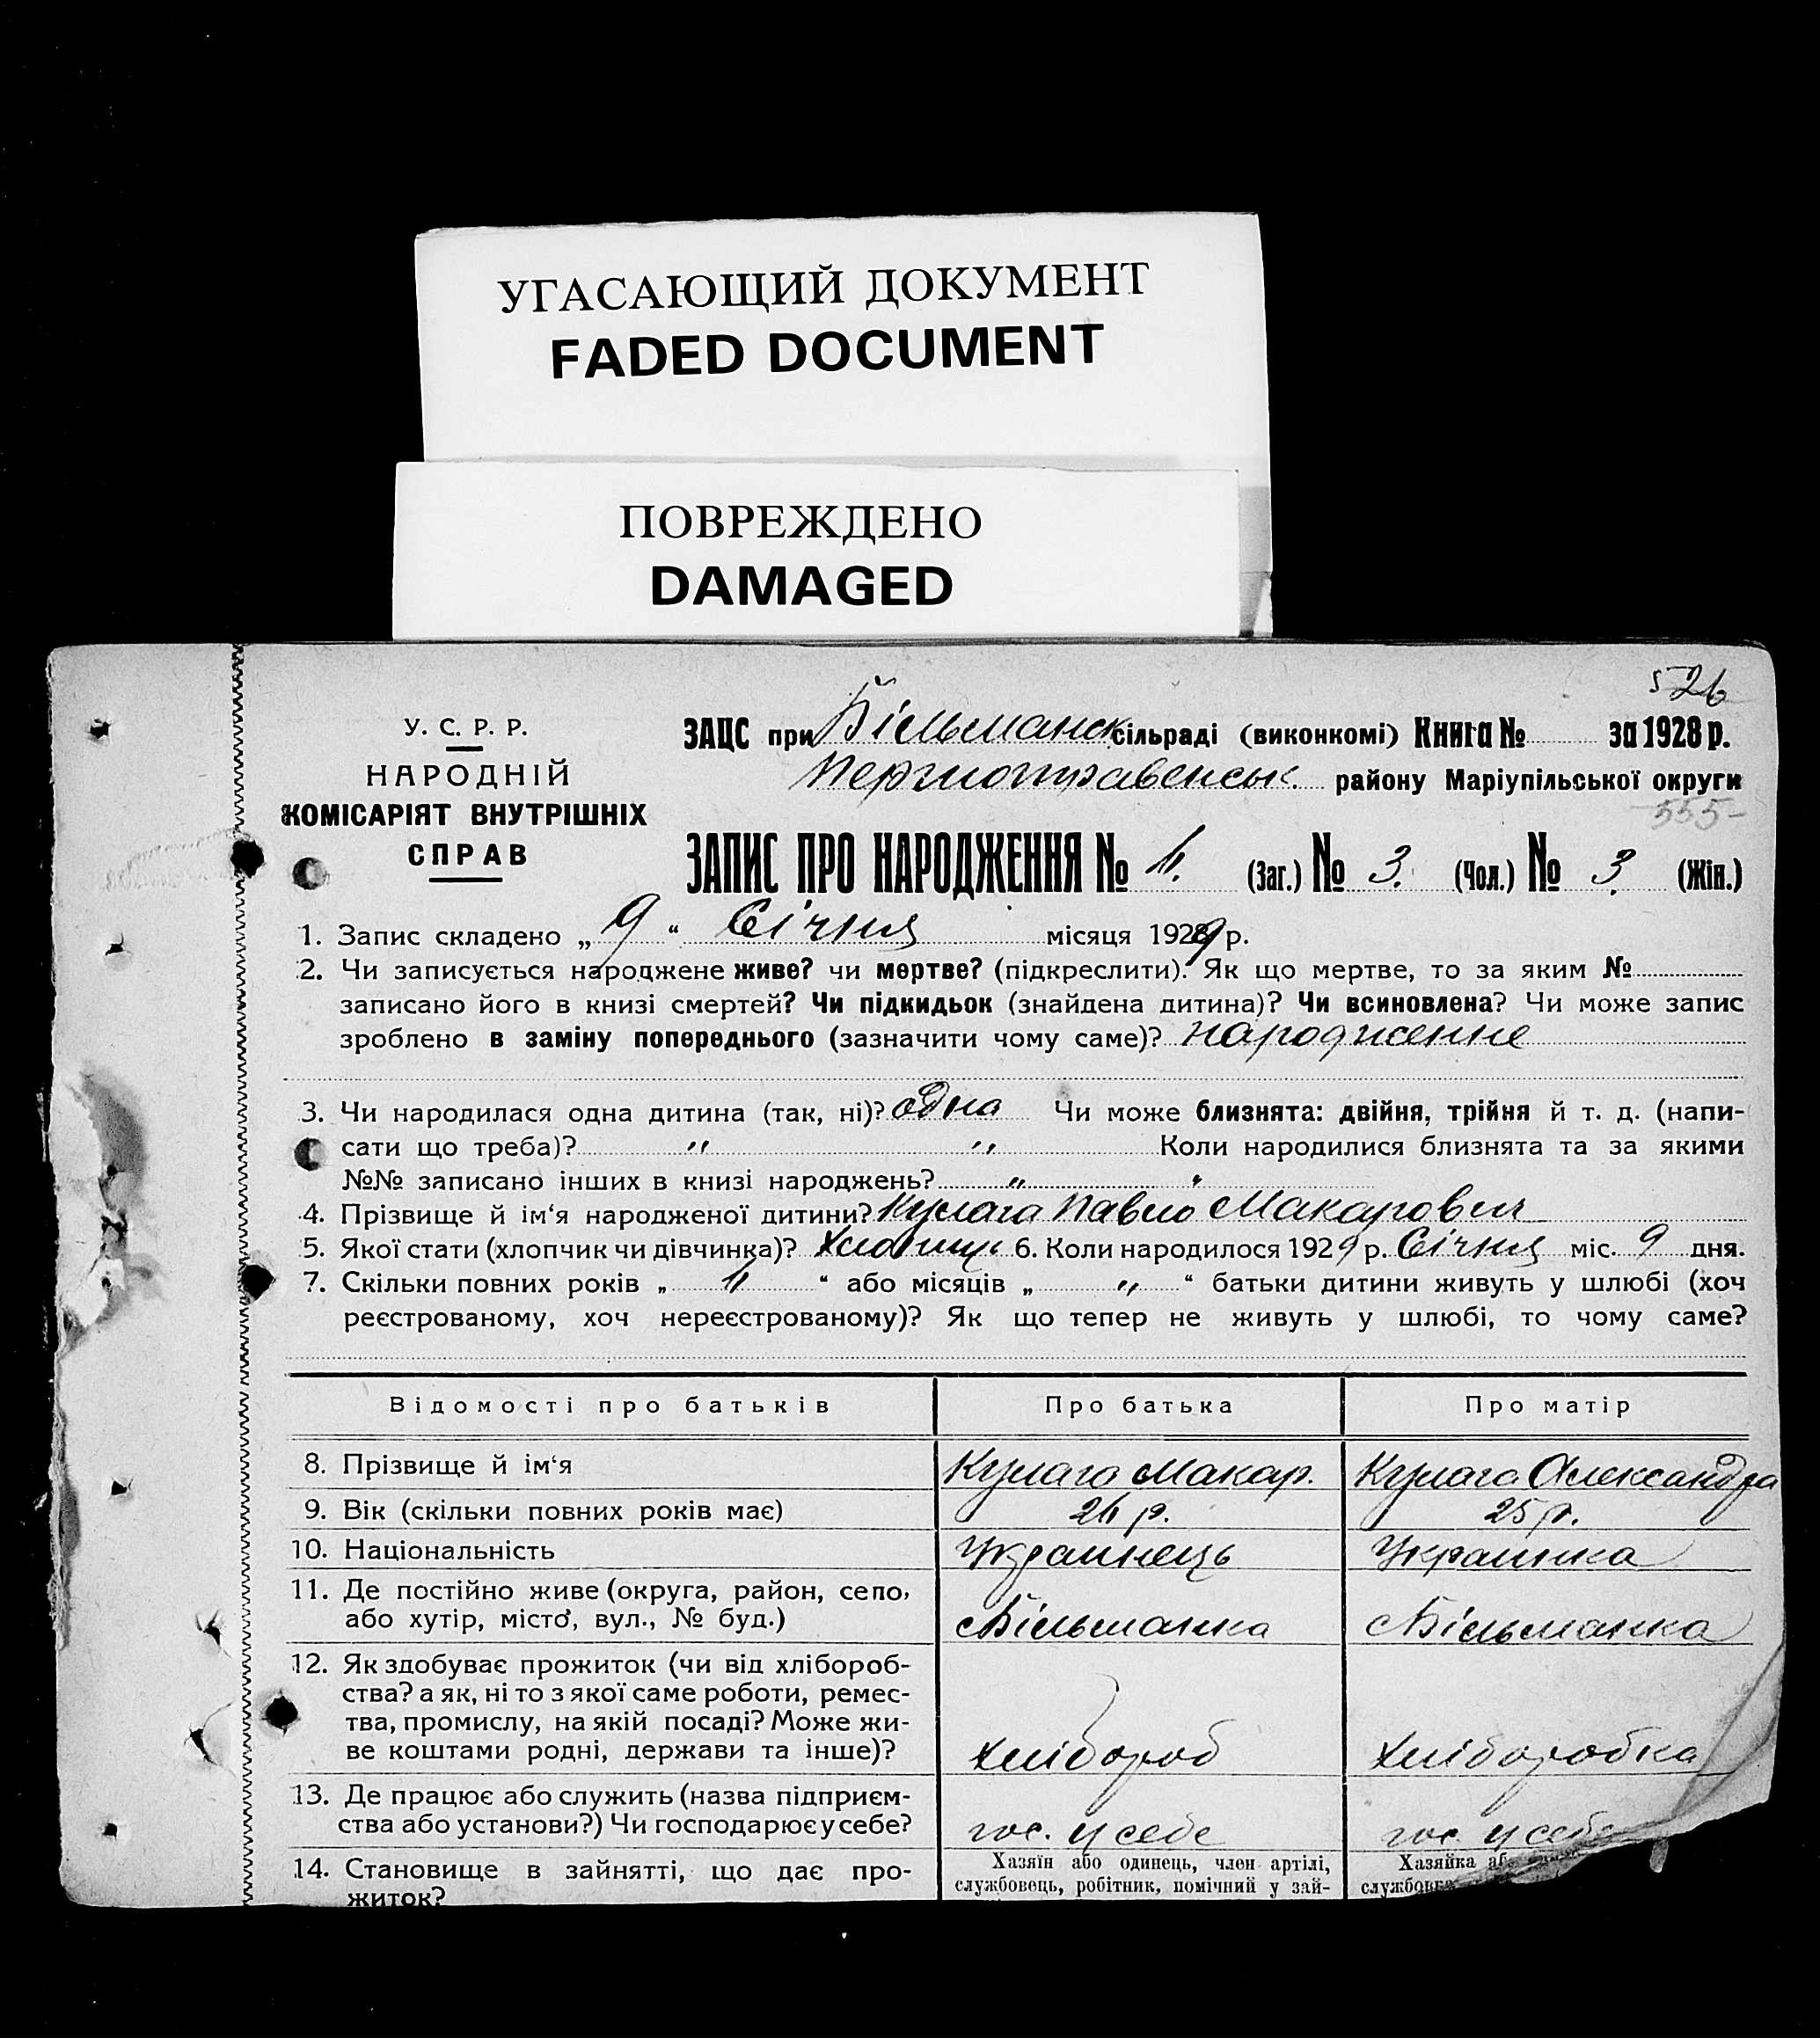 УГАСАЮЩИЙ ДОКУМЕНТ
FADED DOCUMENT
ПОВРЕЖДЕНО
DAMAGED
526
У. С. Р. Р.
НАРОДНІЙ
КОМІСАРІЯТ ВНУТРІШНІХ
СПРАВ
ЗАЦС при Більманск сільраді (виконкомі) Книга № за 1928 р.
Першотравенськ. району Маріупільської округи
555
ЗАПИС ПРО НАРОДЖЕННЯ № 4. (Заг.) № 3. (Чол.) № 3. (Жін.)
1. Запис складено „ 9 “ Січня місяця 1929 р.
2. Чи записується народжене живе? чи мертве? (підкреслити). Як що мертве, то за яким №
записано його в книзі смертей? Чи підкидьок (знайдена дитина)? Чи всиновлена? Чи може запис
зроблено в заміну попереднього (зазначити чому саме)? народженне
3. Чи народилася одна дитина (так, ні)? одна Чи може близнята: двійня, трійня й т. д. (напи-
сати що треба)? „ „ Коли народилися близнята та за якими
№№ записано інших в книзі народжень? „ „
4. Прізвище й ім‘я народженої дитини? Кулага Павло Макарович
5. Якої стати (хлопчик чи дівчинка)? Хлопчик 6. Коли народилося 1929 р. Січня міс. 9 дня.
7. Скільки повних років „ 4 “ або місяців „ „ “ батьки дитини живуть у шлюбі (хоч
реєстрованому, хоч нереєстрованому)? Як що тепер не живуть у шлюбі, то чому саме?
Відомості про батьків Про батька Про матір
8. Прізвище й ім‘я Кулага Макар. Кулага Александра
9. Вік (скільки повних років має) 24 р. 25 р.
10. Національність Украинець Украинка
11. Де постійно живе (округа, район, село,
або хутір, місто, вул., № буд.) Більманка Більманка
12. Як здобуває прожиток (чи від хлібороб-
ства? а як, ні то з якої саме роботи, ремес-
тва, промислу, на якій посаді? Може жи-
ве коштами родні, держави та інше)? хлібороб хліборобка
13. Де працює або служить (назва підприєм-
ства або установи?) Чи господарює у себе? гос. у себе гос. у себе
14. Становище в зайнятті, що дає про-
житок?
Хазяїн або одинець, член артілі,
службовець, робітник, помічний у зай-
Хазяйка